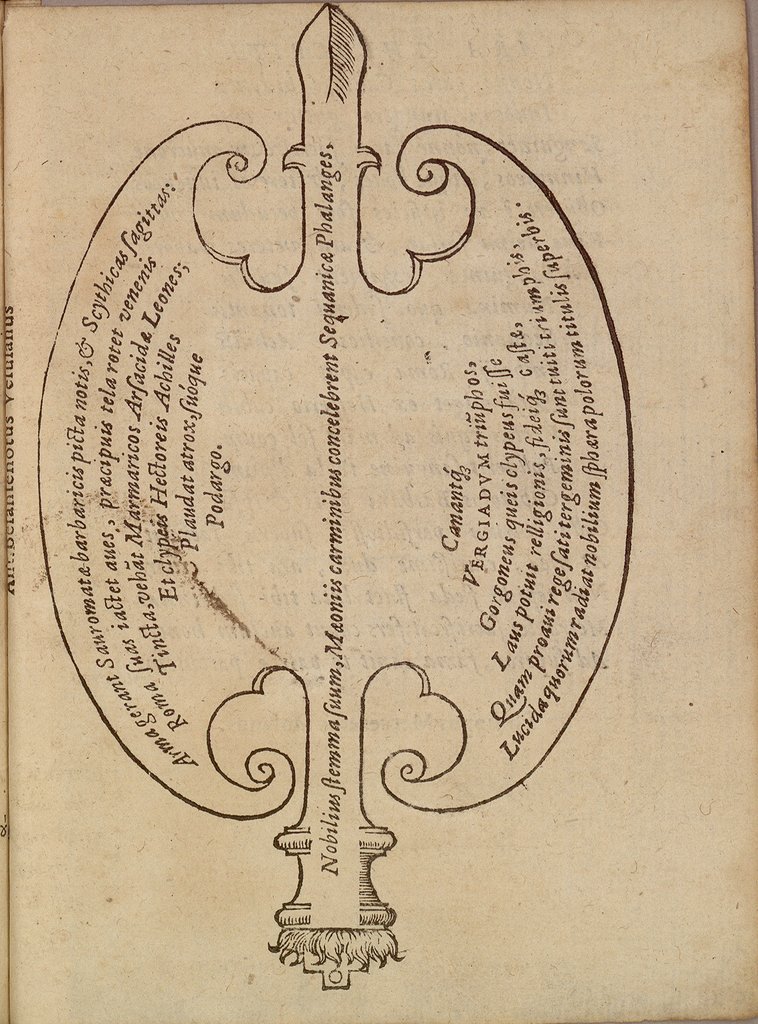 Arma gerant Sauromatæ barbaricis picta notis, & Scythicas ſagittas:
Roma ſuas iactet aues, præcipuis tela rotet venenis
Tincta, vehat Marmaricos Arſacidæ Leones;
Et clypeis Hectoreis Achilles
Plaudat atrox, ſuóque
Podargo.
Nobilius ſtemma ſuum, Mæoniis carminibus concelebrent Sequanicæ Phalanges,
Canantq́;
VERGIADVM triũphos,
Gorgoneus queis clypeus fuiſſe
Laus potuit relligionis, fideiq́; caſtæ,
Quam proaui rege ſati tergeminis ſunt tuiti triumphis,
Lucida quorum radiat nobilium ſphæra polorum titulis ſuperbis